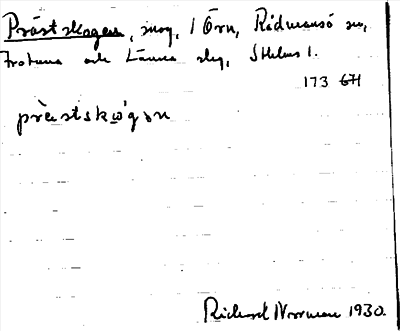 Prästskogen, skog, 1 Örn, Rådmansö sn,
Frötuna och Länna slg, Sthlms l.
173 GH
præstskó̢gən
Richard Norrman 1930.